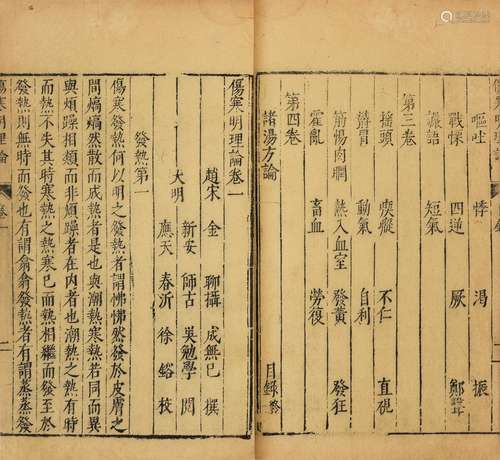 嘔吐 悸 渴 振
戰慄 四逆 厥 鄭聲
讝語 短氣
第三卷
搖頭 瘈瘲 不仁 直視
動氣 自利
筋惕肉瞤 熱入血室 發黃 發狂
霍亂 畜血 勞復
第四卷
諸湯方論 目錄終
傷寒明理論卷一
趙宋 金 聊攝 成無已 撰
新安 師古 吳勉學 閱
大明
應天 春沂 徐鎔 校
發熱第一
傷寒發熱何以明之發熱者謂怫怫然發於皮膚之
間熇熇然散而成熱者是也與潮熱寒熱若同而異
與煩躁相類而非煩躁者在內者也潮熱之熱有時
而熱不失其時寒熱之熱寒已而熱相繼而發至於
發熱則無時而發也有謂翕翕發熱者有謂蒸蒸發
傷寒明理論 卷一